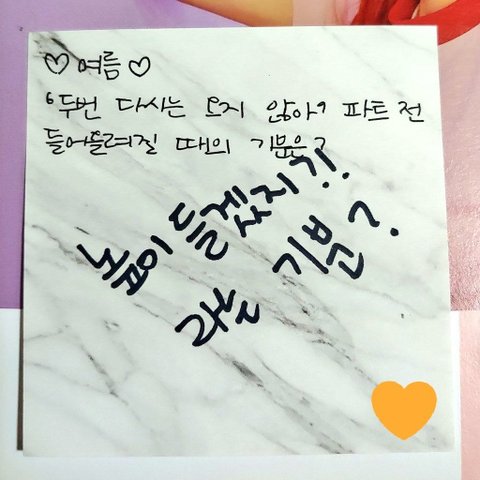 ♡여름♡
'두번 다시는 오지 않아' 파트 전
들어올려질 때의 기분은?
높이 들겠지?!
라는 기분?